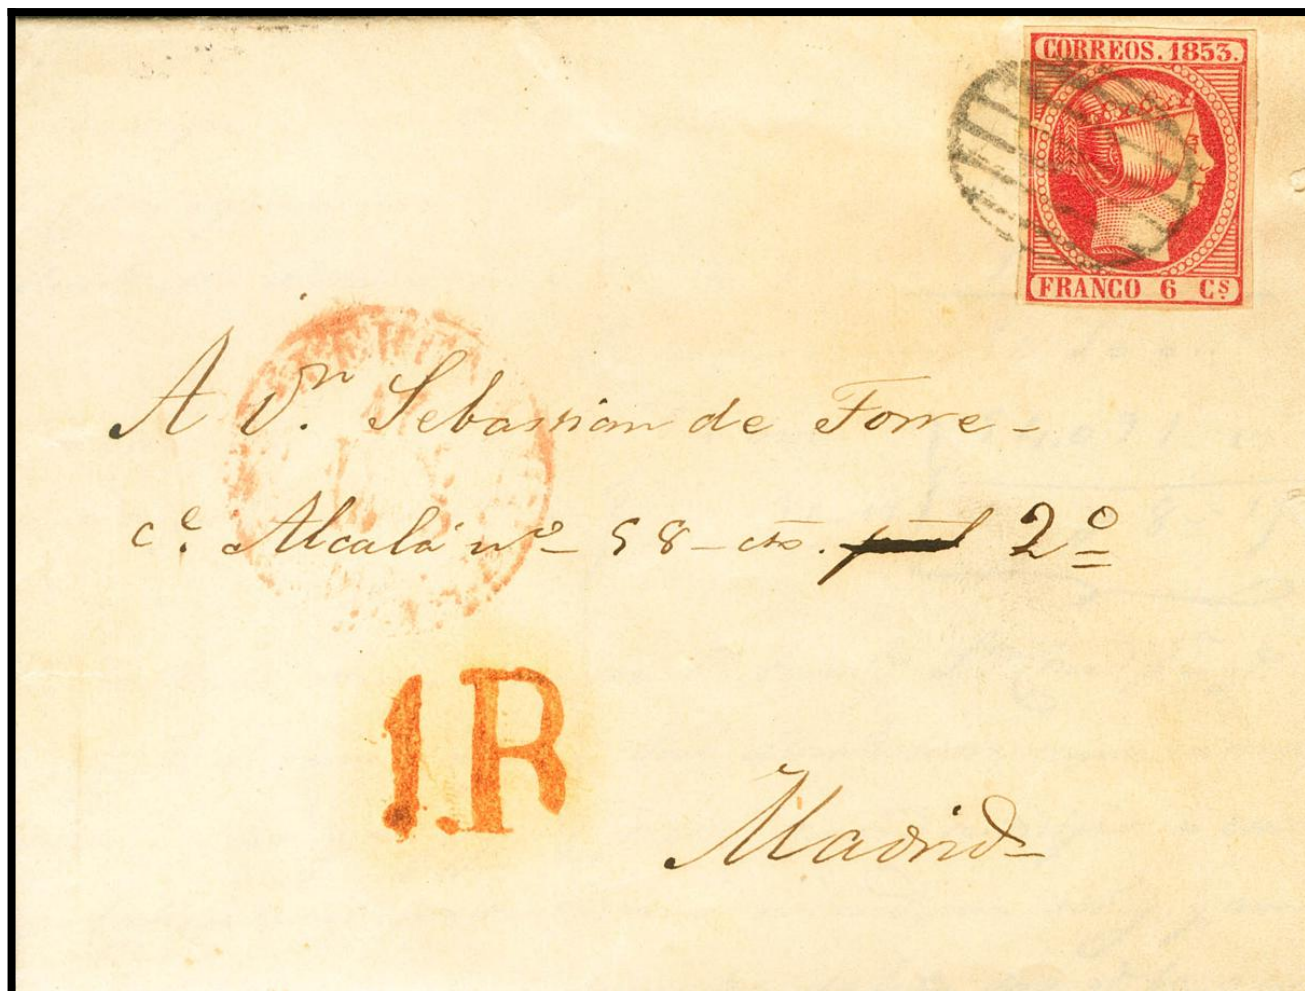 CORREOS. 1853.
FRANCO 6 Cs.
A Dn. Sebastian de Torre -
ce. Alcalá nº - 58 - cto. 2º
1R
Madrid